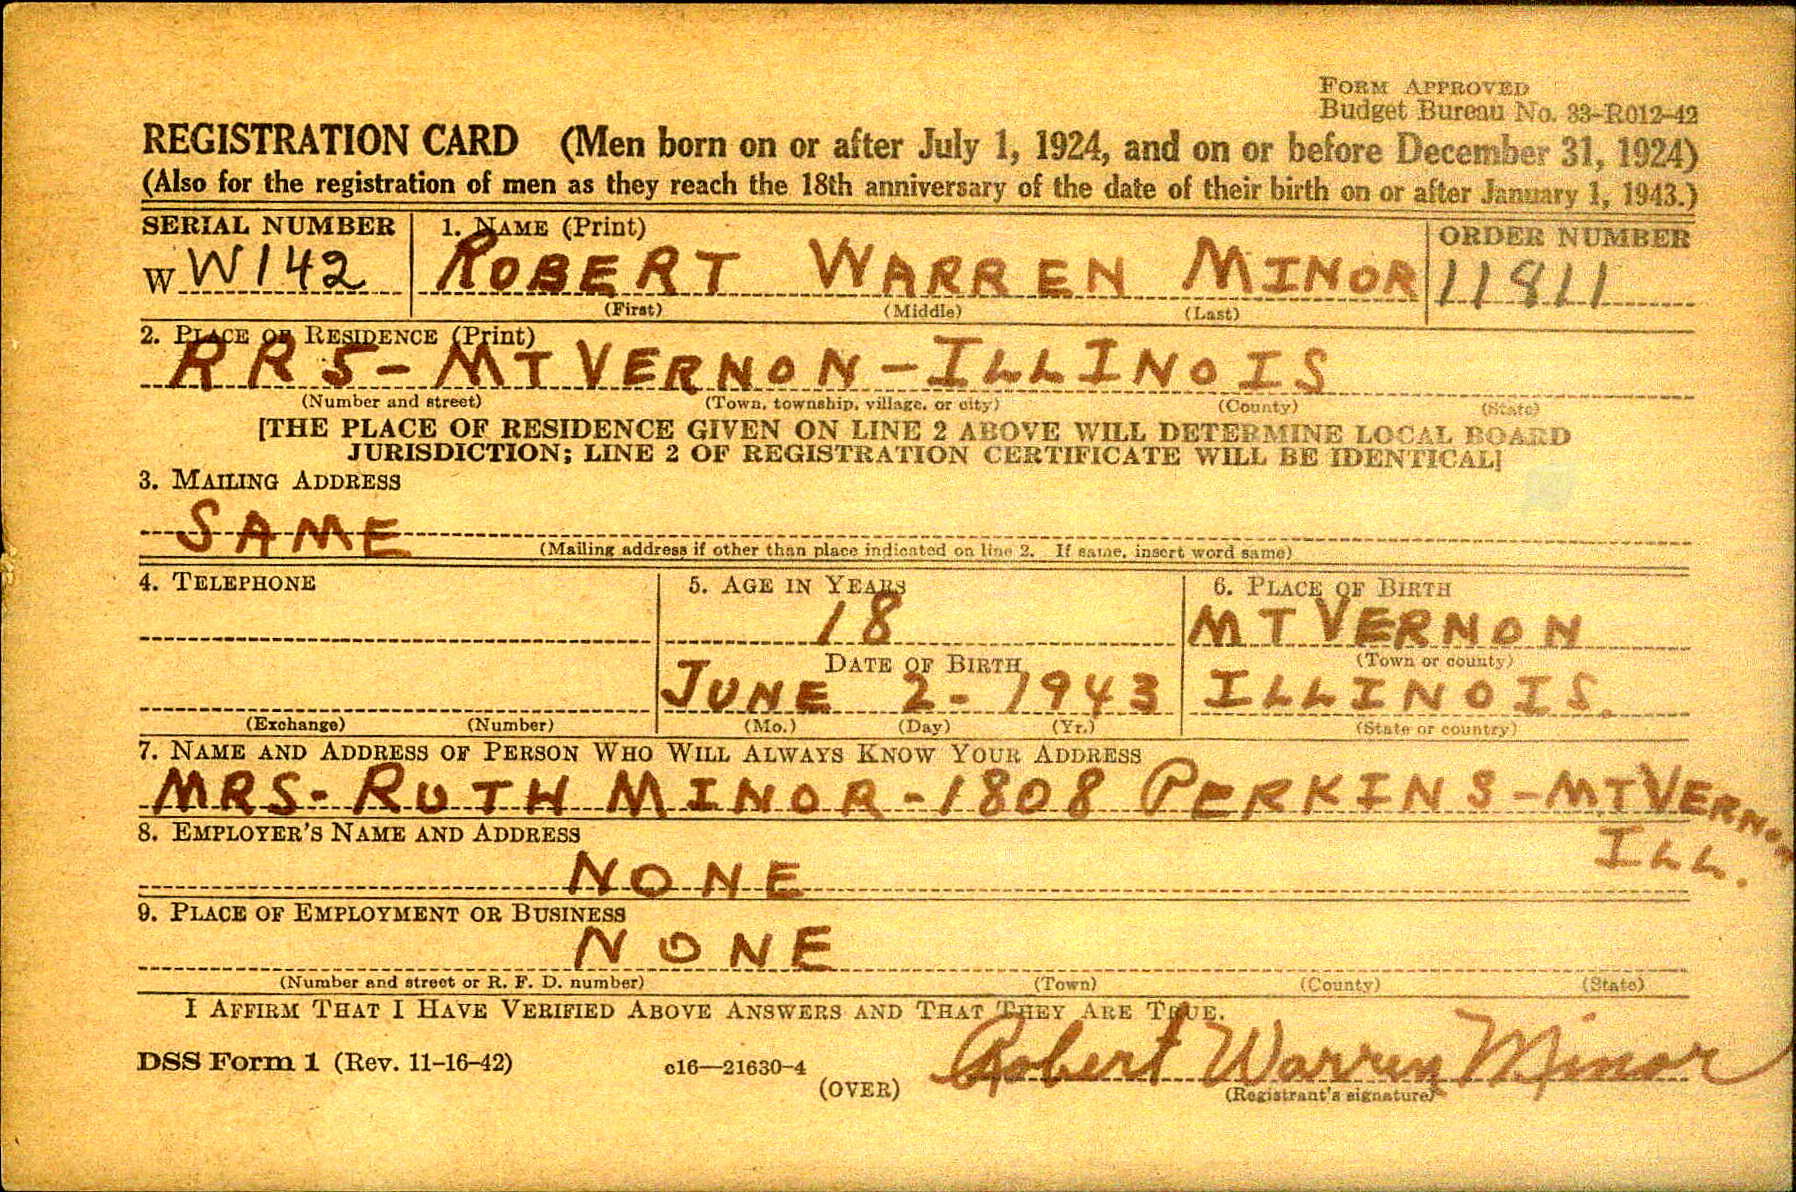 FORM APPROVED
Budget Bureau No. 33-R012-42
REGISTRATION CARD (Men born on or after July 1, 1924, and on or before December 31, 1924)
(Also for the registration of men as they reach the 18th anniversary of the date of their birth on or after January 1, 1943.)
SERIAL NUMBER 1. NAME (Print) ORDER NUMBER
W W142 ROBERT WARREN MINOR 11811
(First) (Middle) (Last)
2. PLACE OF RESIDENCE (Print)
RR 5 - MT VERNON - ILLINOIS
(Number and street) (Town, township, village, or city) (County) (State)
[THE PLACE OF RESIDENCE GIVEN ON LINE 2 ABOVE WILL DETERMINE LOCAL BOARD
JURISDICTION; LINE 2 OF REGISTRATION CERTIFICATE WILL BE IDENTICAL]
3. MAILING ADDRESS
SAME
(Mailing address if other than place indicated on line 2. If same, insert word same)
4. TELEPHONE 5. AGE IN YEARS 6. PLACE OF BIRTH
18 MT VERNON
DATE OF BIRTH (Town or county)
JUNE 2 - 1943 ILLINOIS.
(Exchange) (Number) (Mo.) (Day) (Yr.) (State or country)
7. NAME AND ADDRESS OF PERSON WHO WILL ALWAYS KNOW YOUR ADDRESS
MRS - RUTH MINOR - 1808 PERKINS - MT VERNON
ILL.
8. EMPLOYER'S NAME AND ADDRESS
NONE
9. PLACE OF EMPLOYMENT OR BUSINESS
NONE
(Number and street or R. F. D. number) (Town) (County) (State)
I AFFIRM THAT I HAVE VERIFIED ABOVE ANSWERS AND THAT THEY ARE TRUE.
DSS Form 1 (Rev. 11-16-42) c16—21630-4 Robert Warren Minor
(OVER) (Registrant's signature)